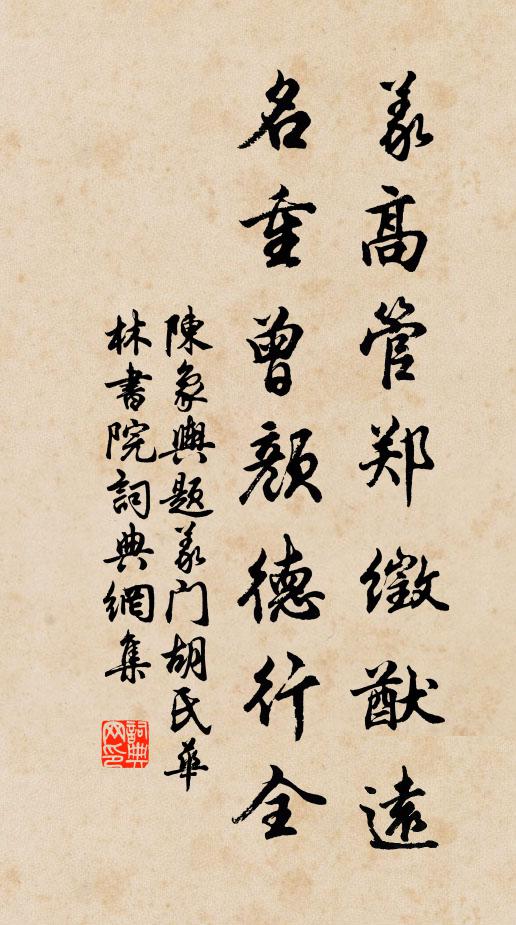 義高管郑徽猷遠
名重曾顏德行全
陳象輿題義门胡氏華
林書院詞典網集
詞典
网印